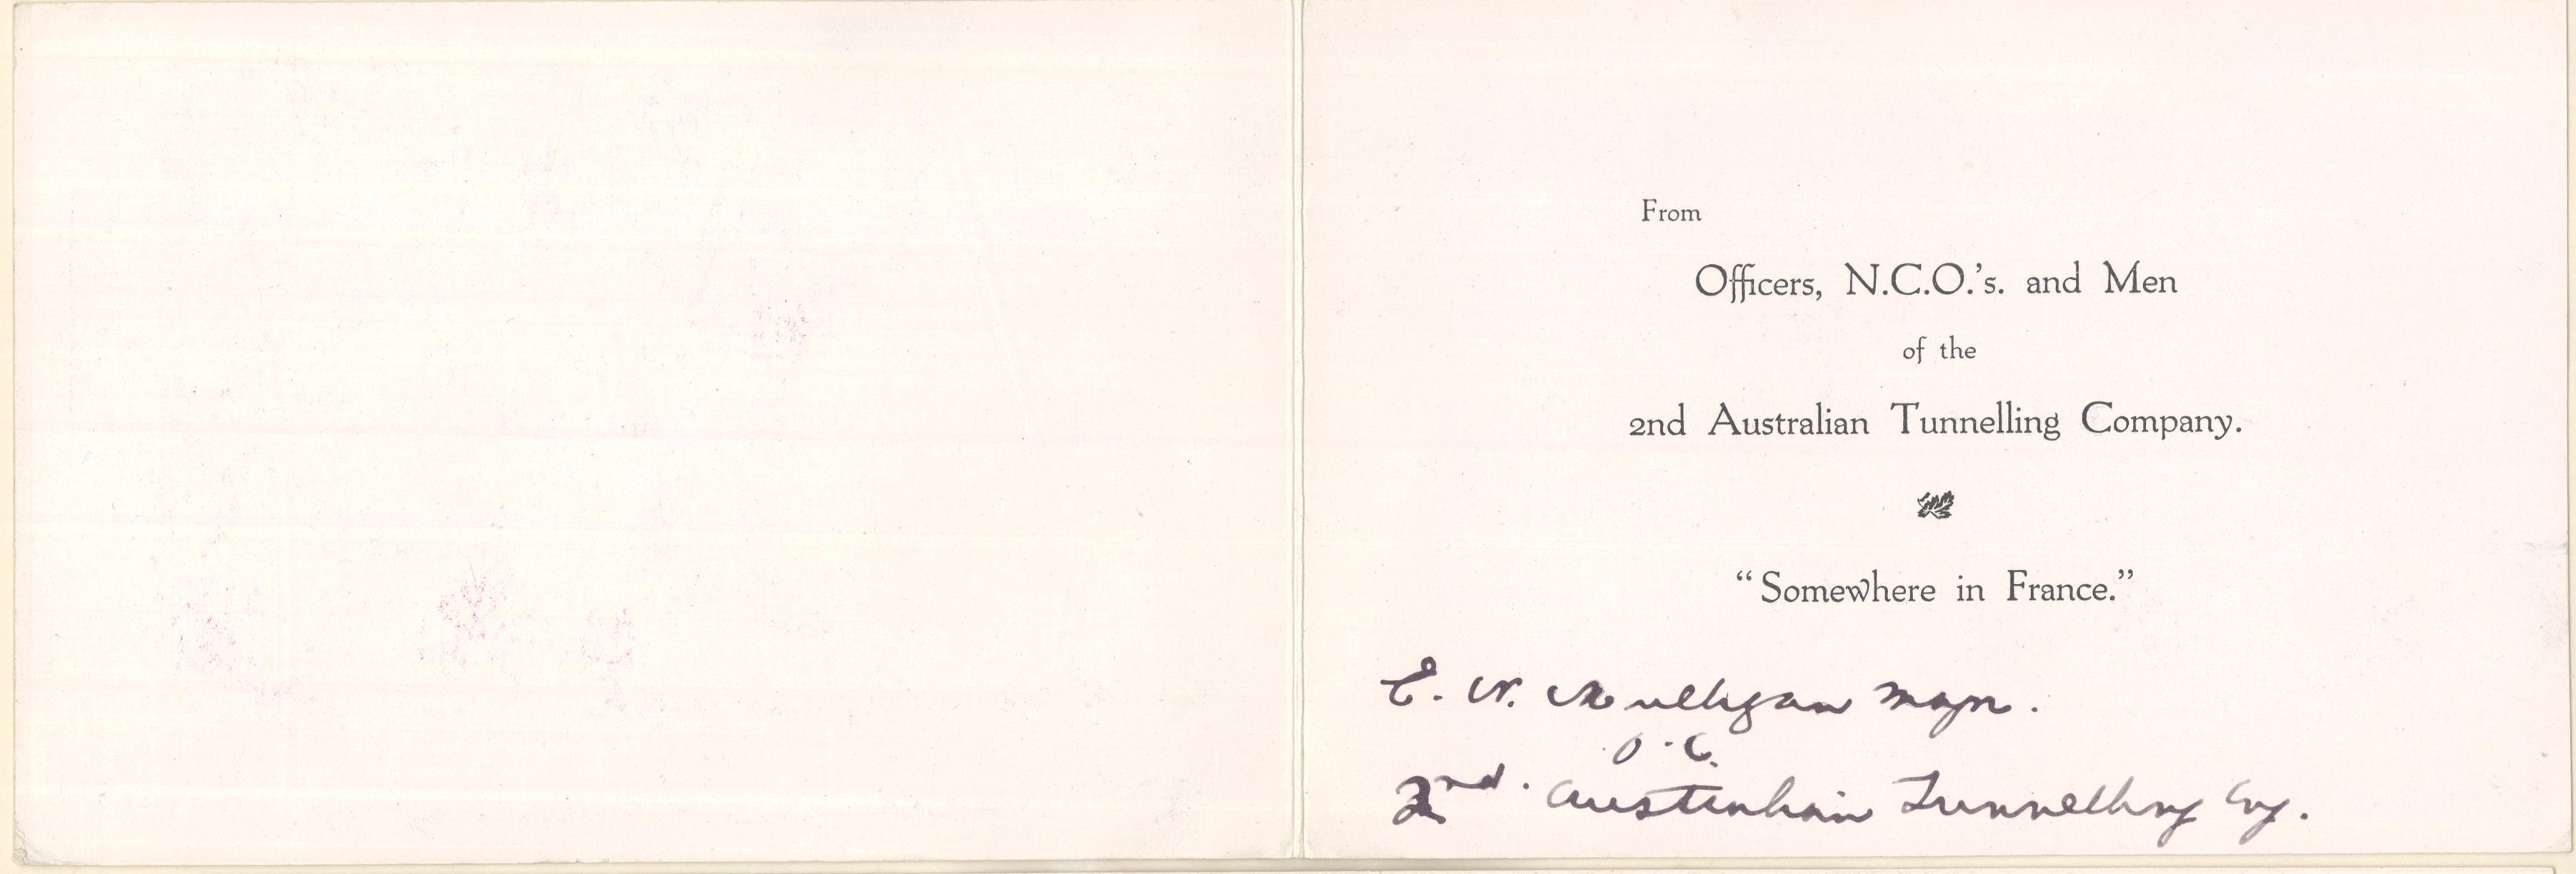 From
Officers, N.C.O.'s. and Men
of the
2nd Australian Tunnelling Company.
“Somewhere in France.”
E. N. Mulligan Major.
O.C.
2nd. Australian Tunnelling Coy.